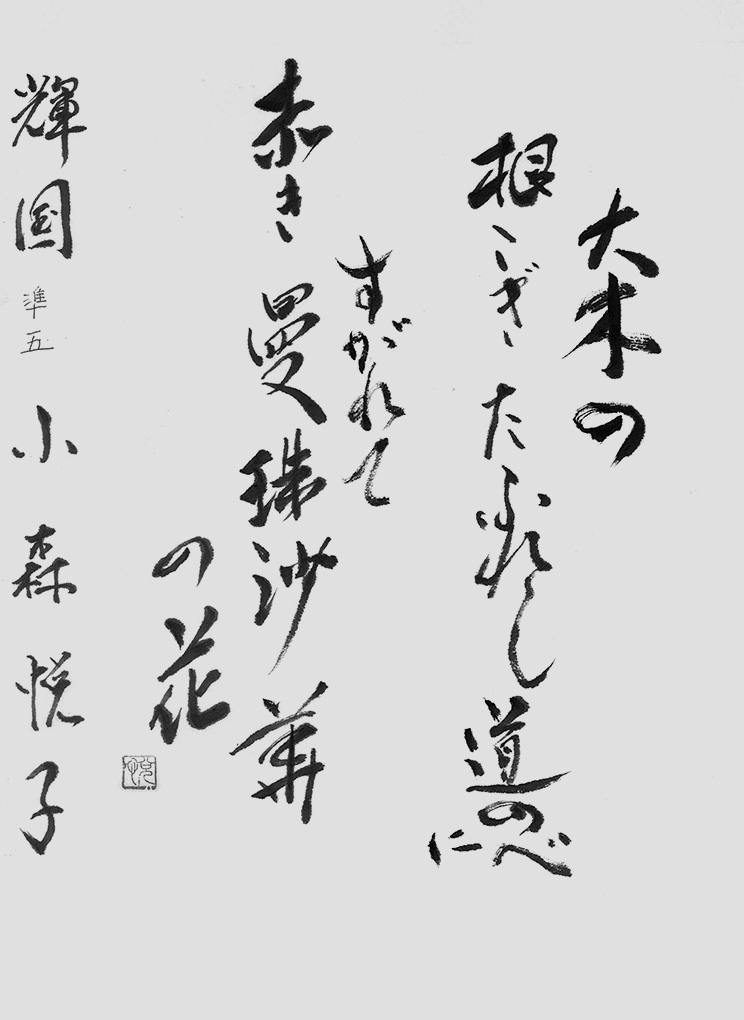 大木の
根こぎたふれし道のべ
に
すがれて
赤き曼珠沙華
の花
悦
輝国 準五 小森悦子